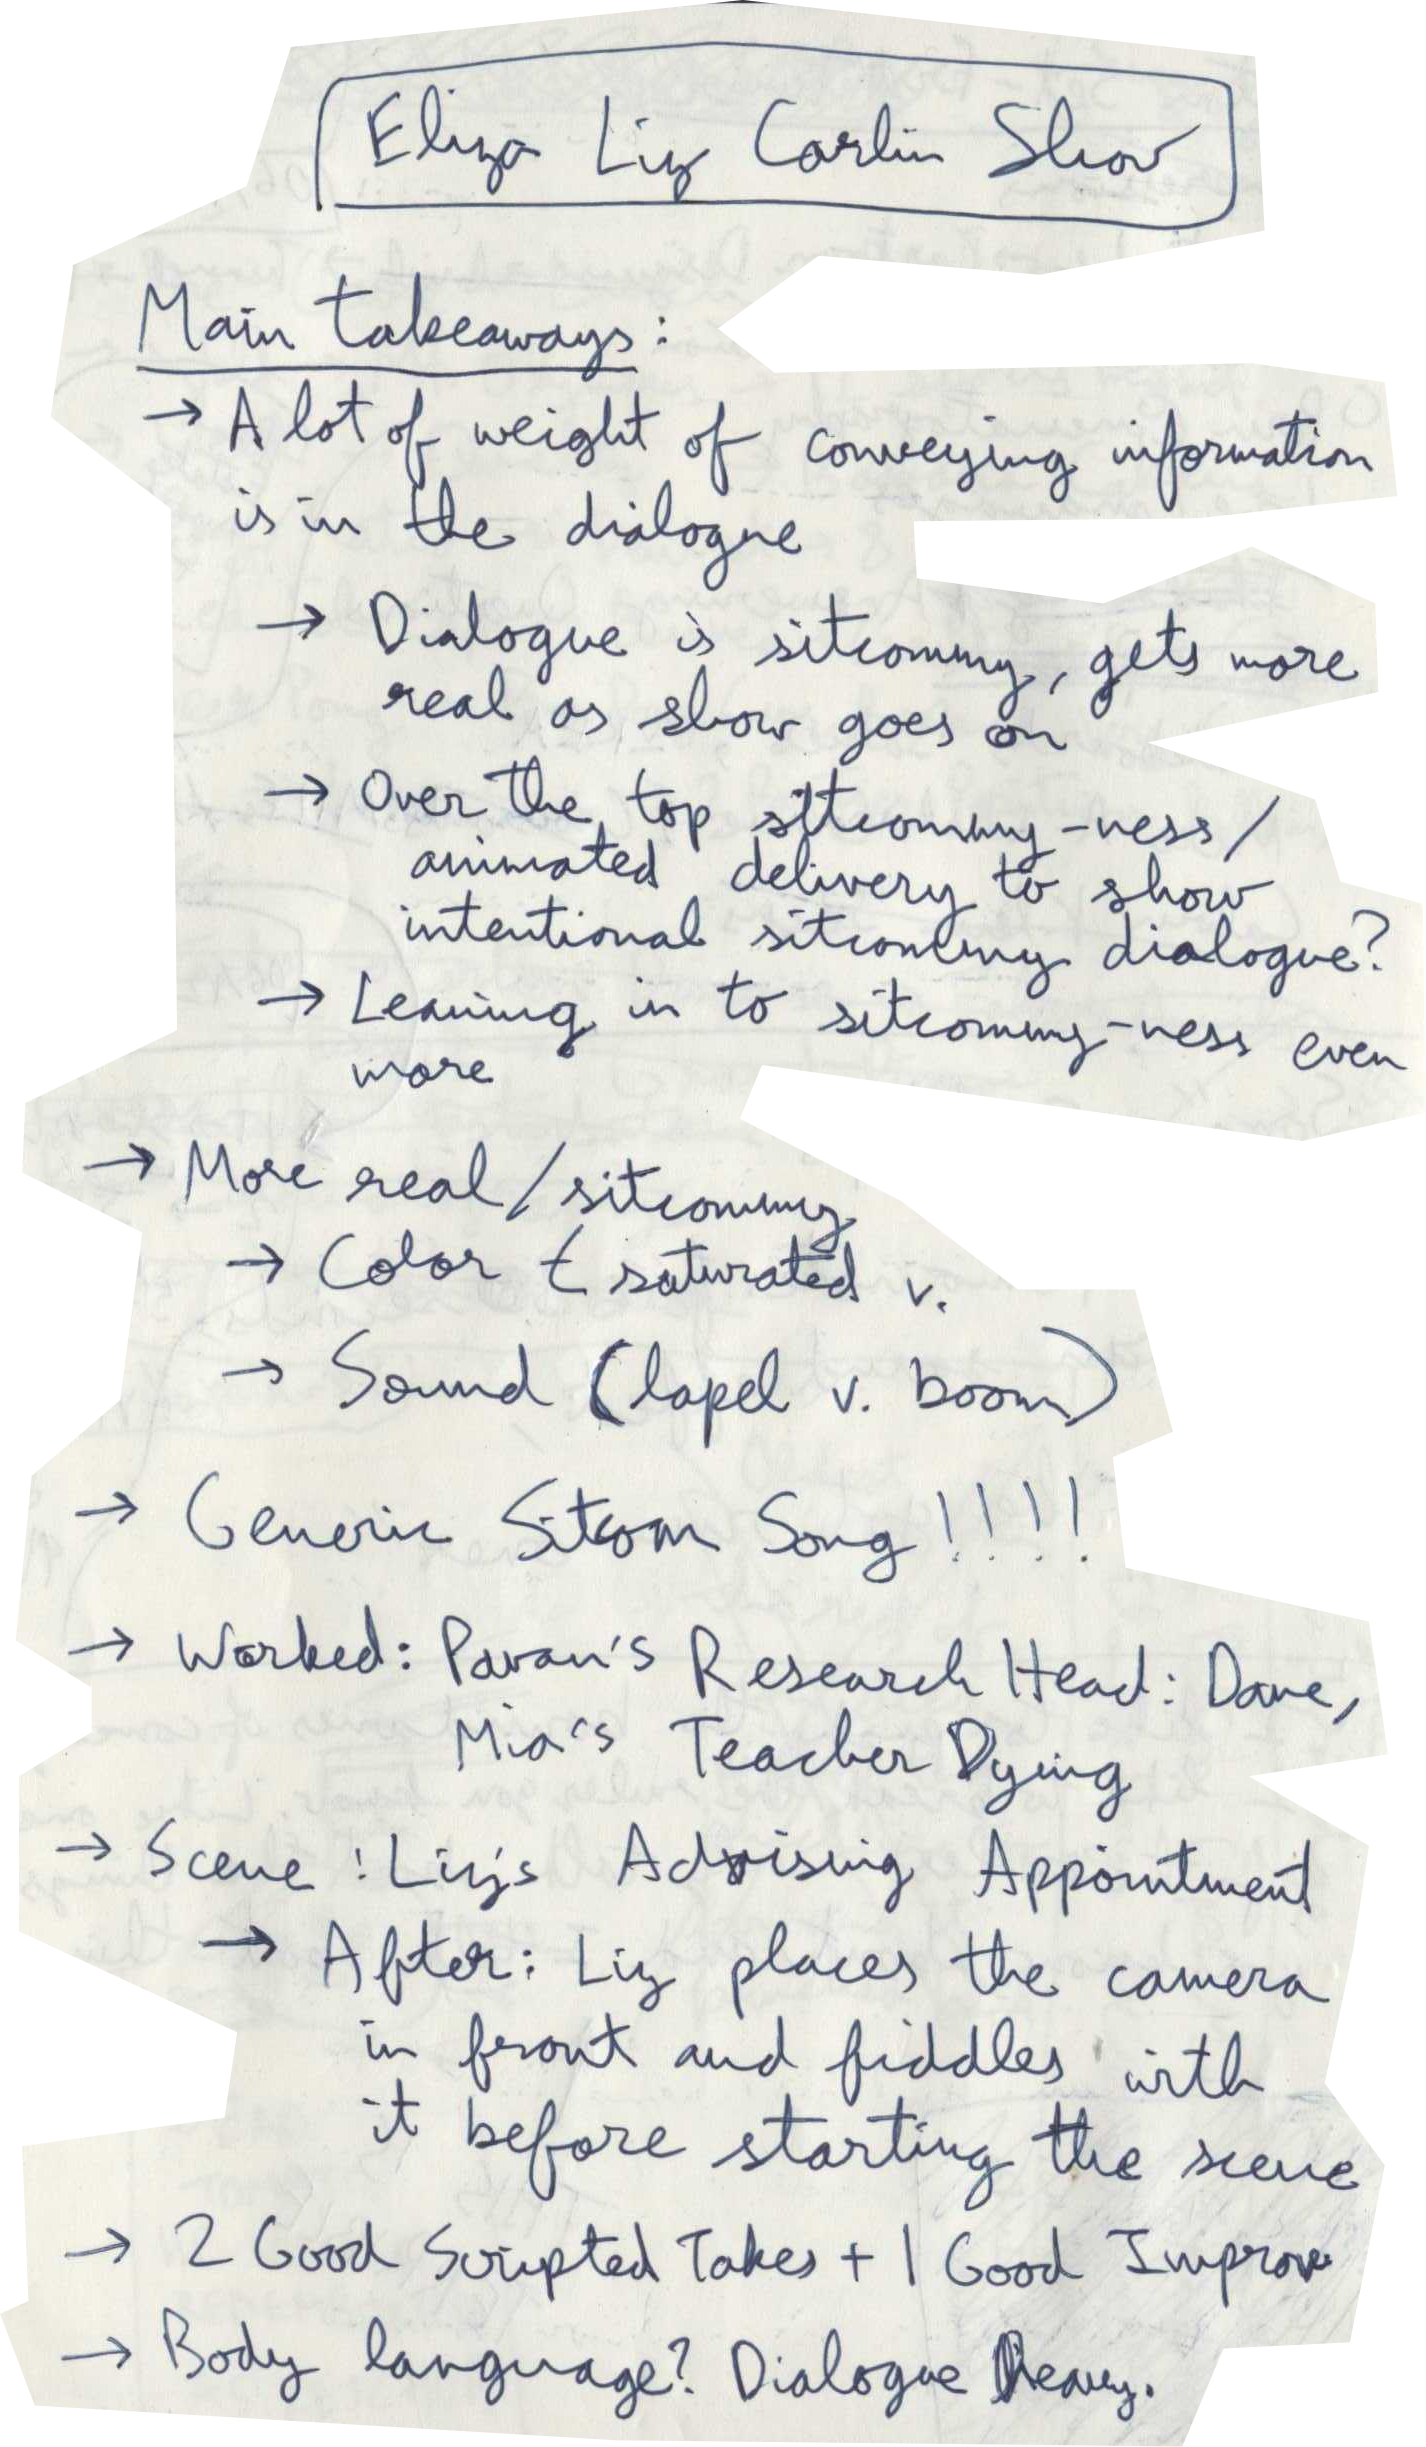 Eliza Liz Carlin Show
Main takeaways:
→ A lot of weight of conveying information
is in the dialogue
→ Dialogue is sitcommy, gets more
real as show goes on
→ Over the top sitcommy-ness/
animated delivery to show
intentional sitcommy dialogue?
→ Leaning in to sitcommy-ness even
more
→ More real/sitcommy
→ Color ( saturated v.
→ Sound (lapel v. boom)
→ Generic Sitcom Song!!!!
→ Worked: Pavan's Research Head: Dave,
Mia's Teacher Dying
→ Scene: Liz's Advising Appointment
→ After: Liz places the camera
in front and fiddles with
it before starting the scene
→ 2 Good Scripted Takes + 1 Good Improv
→ Body language? Dialogue Heavy.